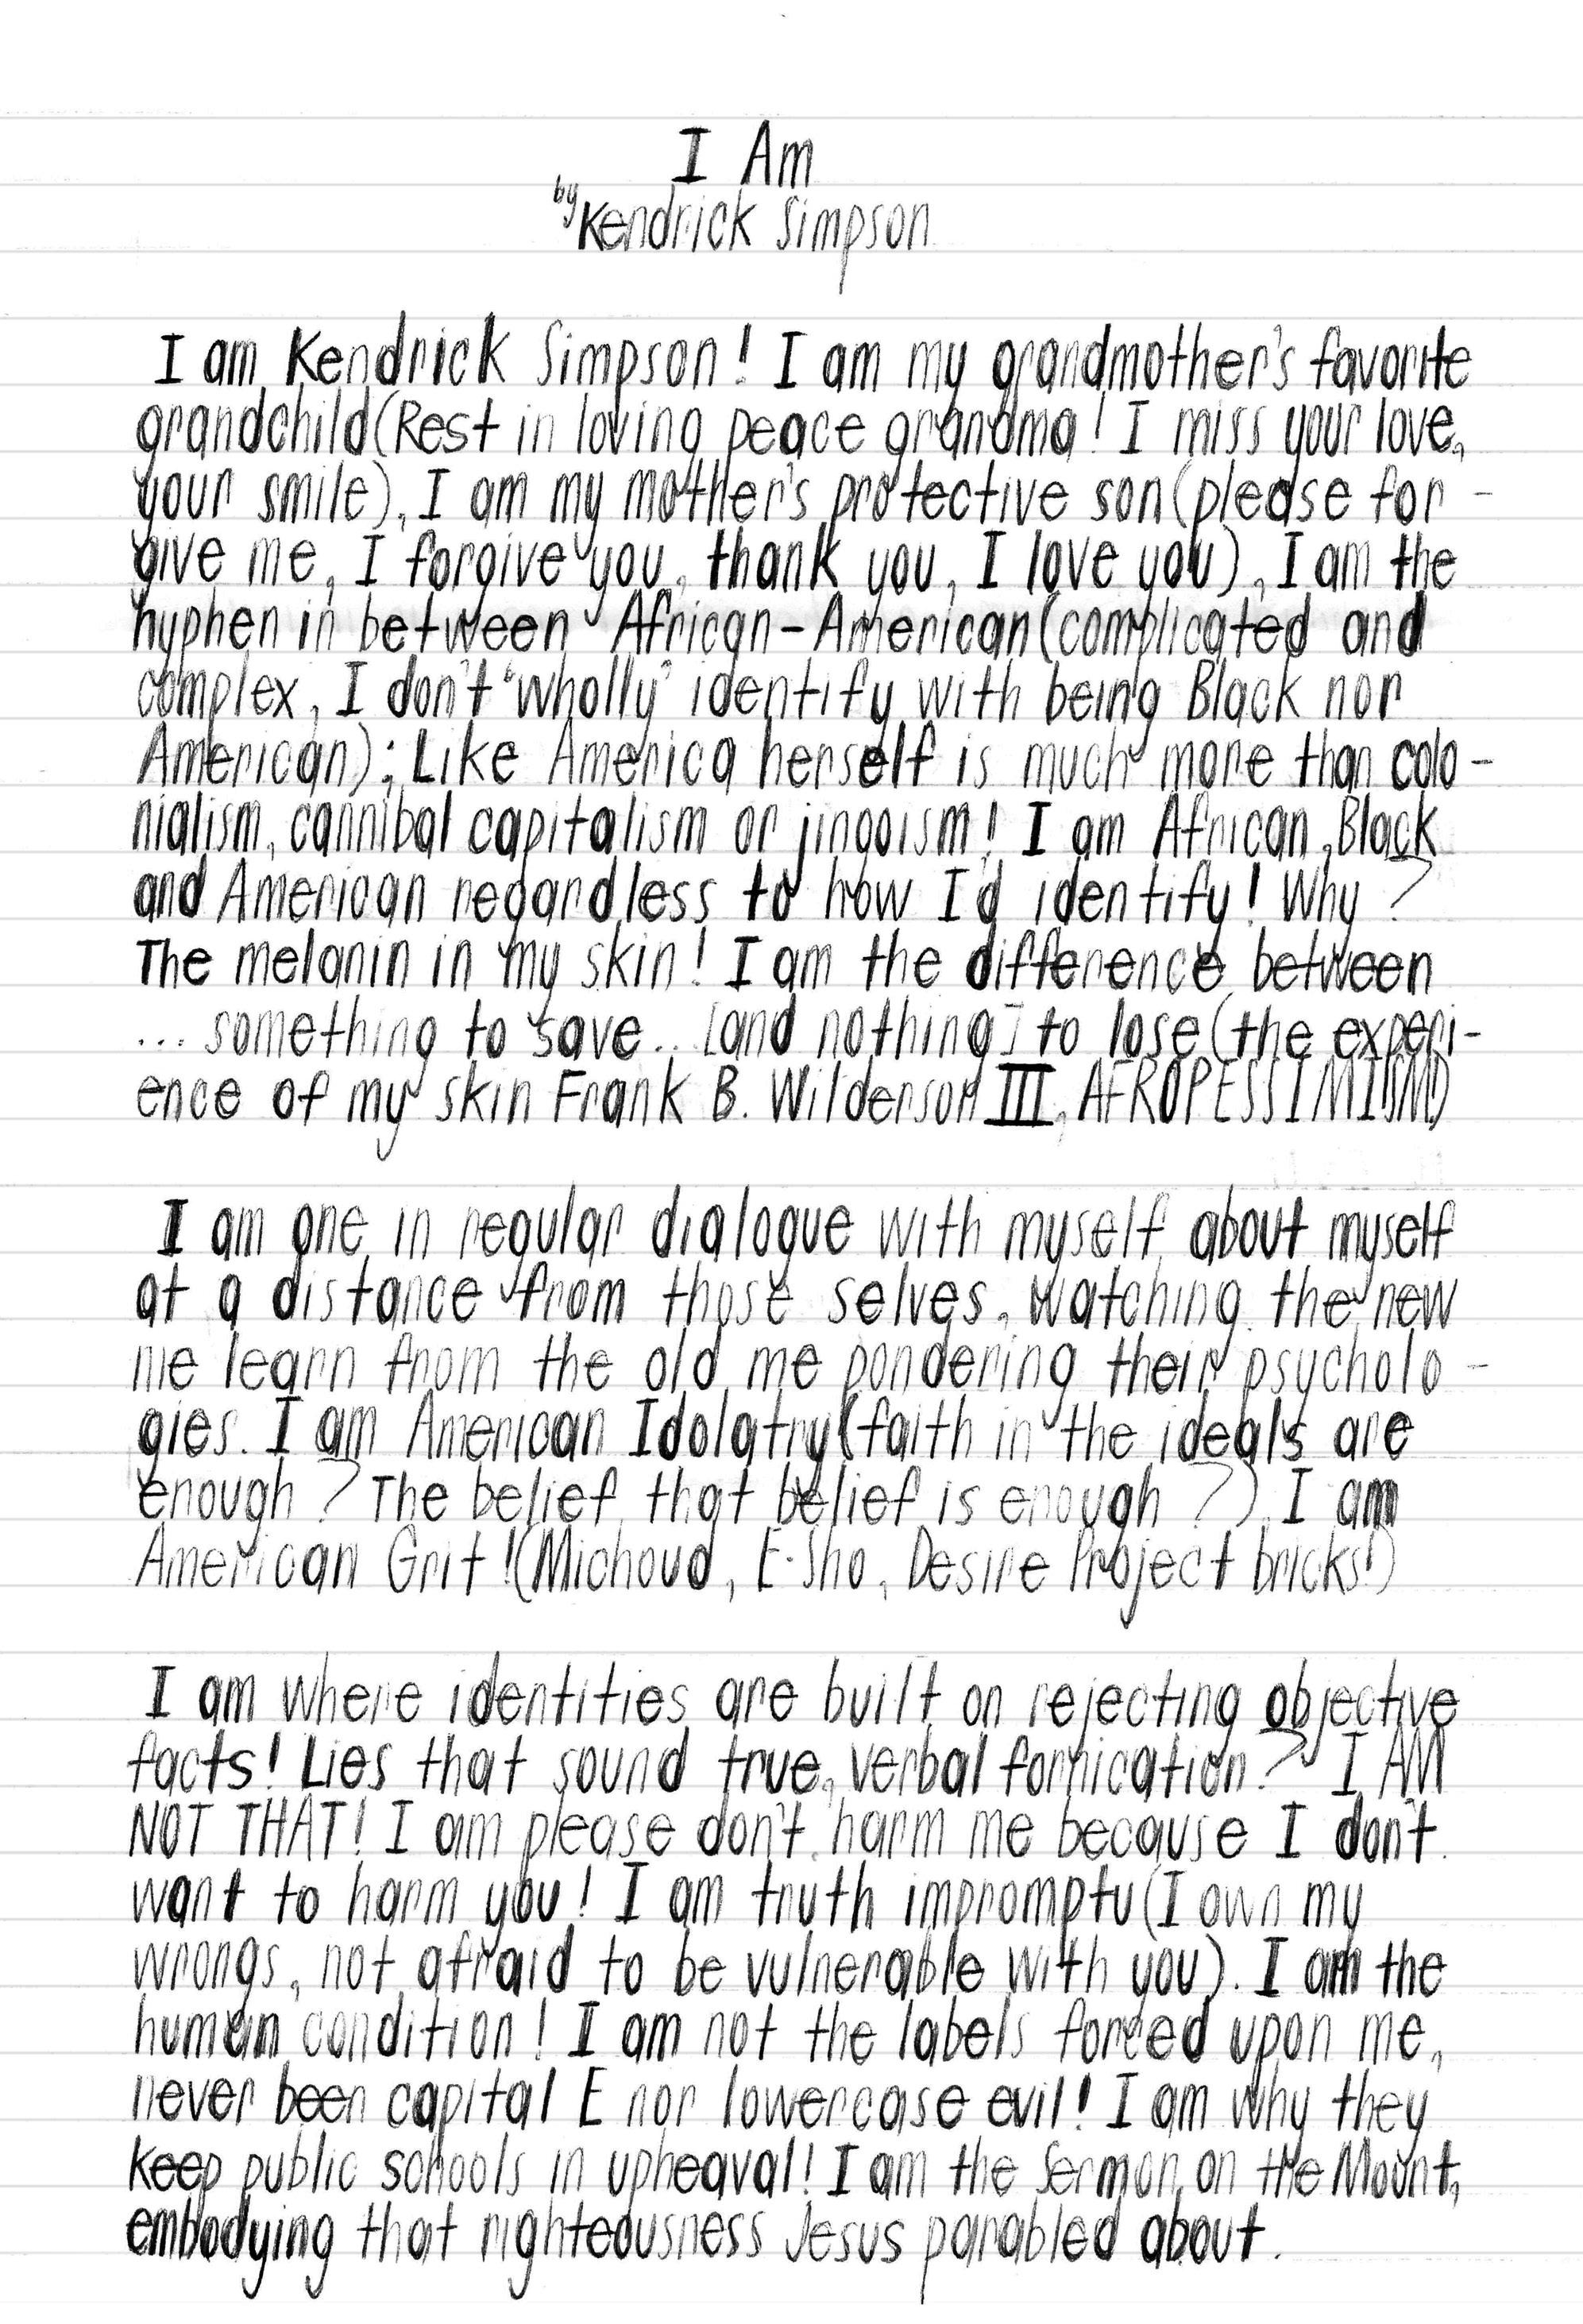 I Am
by Kendrick Simpson
I am Kendrick Simpson! I am my grandmother's favorite
grandchild (Rest in loving peace grandma! I miss your love,
your smile), I am my mother's protective son (please for-
give me, I forgive you, thank you, I love you), I am the
hyphen in between African-American (complicated and
complex, I don't "wholly" identify with being Black nor
American); Like America herself is much more than colo-
nialism, cannibal capitalism or jingoism! I am African, Black
and American regardless to how I'd identify! Why?
The melanin in my skin! I am the difference between
... something to save... [and nothing] to lose (the experi-
ence of my skin Frank B. Wilderson III, AFROPESSIMISM)
I am one in regular dialogue with myself about myself
at a distance from those selves. Watching the new
me learn from the old me pondering their psycholo-
gies. I am American Idolatry (faith in the ideals are
enough? The belief that belief is enough?). I am
American Grit! (Michoud, E-Sho, Desire Project bricks!)
I am where identities are built on rejecting objective
facts! Lies that sound true, verbal fornication? I AM
NOT THAT! I am please don't harm me because I don't
want to harm you! I am truth impromptu (I own my
wrongs, not afraid to be vulnerable with you). I am the
human condition! I am not the labels forced upon me,
never been capital E nor lowercase evil! I am why they
keep public schools in upheaval! I am the Sermon on the Mount,
embodying that righteousness Jesus parabled about.